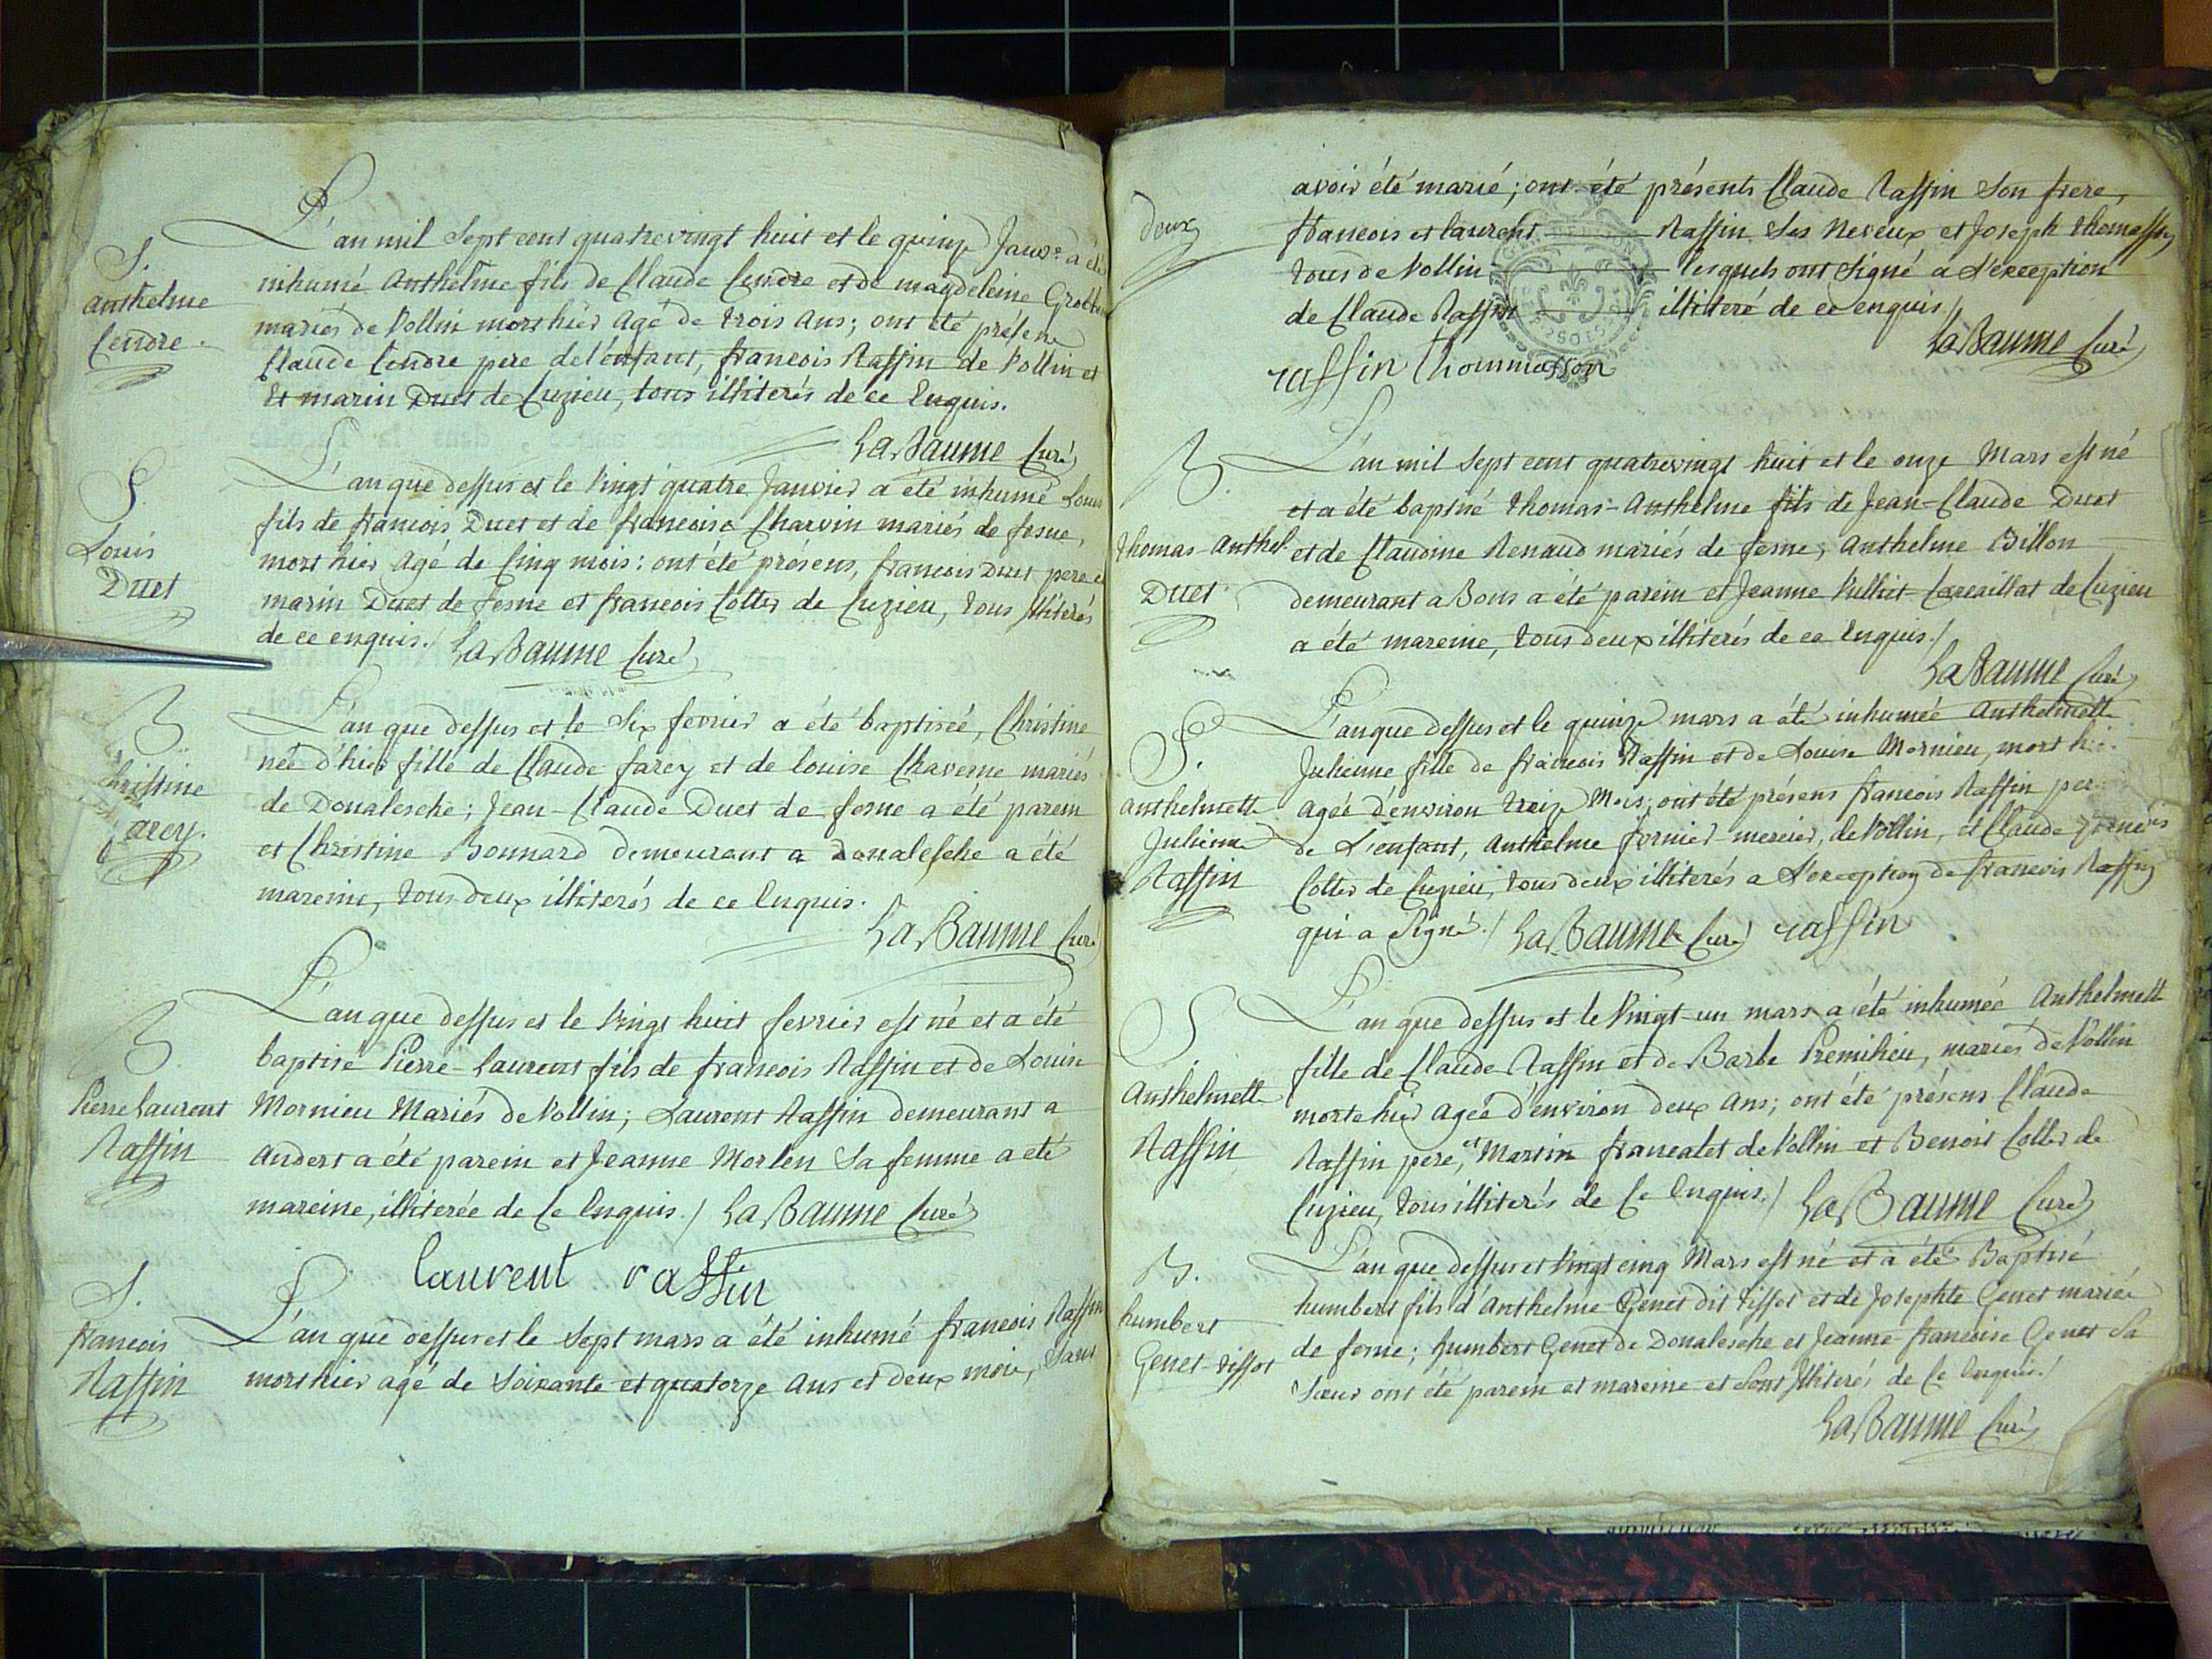 S.
anthelme
Cendre.
L'an mil sept cent quatrevingt huit et le quinze Janvr. a été
inhumé Anthelme fils de Claude Cendre et de magdeleine
mariés de Vollin mort hier agé de trois ans; ont été présens
Claude Cendre pere de l'enfant, francois Raffin de Vollin et
Et marin Duet de Cuzieu, tous illiterés de ce Enquis.
LaBaume Curé
S.
Louis
Duet
L'an que dessus et le Vingt quatre Janvier a été inhumé Louis
fils de francois Duet et de francoise Charvin mariés de fosne,
mort hier agé de Cinq mois: ont été présens, francois Duet pere et
marin Duet de fosne et francois Cottis de Cuzieu, tous illiterés
de ce enquis./ LaBaume Curé
B
Christine
farcy.
L'an que dessus et le Six fevrier a été baptisée, Christine
née d'hier fille de Claude farcy et de louise Chaverne mariés
de Donalesche; Jean-Claude Duet de fosne a été parein
et Christine Bonnard demeurant a Donalesche a été
mareine, tous deux illiterés de ce Enquis.
LaBaume Curé
B
Pierre laurent
Raffin
L'an que dessus et le Vingt huit fevrier est né et a été
baptisé Pierre-laurent fils de francois Raffin et de Louise
Mornieu Mariés de Vollin; Laurent Raffin demeurant a
Andert a été parein et Jeanne Morlen sa femme a été
mareine, illiterée de Ce Enquis./ LaBaume Curé
laurent raffin
S.
francois
Raffin
L'an que dessus et le Sept mars a été inhumé francois Raffin
mort hier agé de Soixante et quatorze ans et deux mois, sans
deux
avoir été marié; ont été présents Claude Raffin Son frere,
francois et laurent Raffin Ses Neveux et Joseph thomasson
tous de Vollin lesquels ont Signé a L'exception
de Claude Raffin illiteré de ce enquis/
LaBaume Curé
raffin thommasson
B.
thomas-Anthel.
Duet
L'an mil Sept cent quatrevingt huit et le onze Mars est né
et a été baptisé thomas-Anthelme fils de Jean-Claude Duet
et de Claudine Renaud mariés de fosne; Anthelme Billon
demeurant a Bons a été parein et Jeanne Vulliet de Cuzieu
a été mareine, tous deux illiterés de ce Enquis./
LaBaume Curé
S.
anthelmette
Julienne
Raffin
L'an que dessus et le quinze mars a été inhumée Anthelmette
Julienne fille de francois Raffin et de Louise Mornieu, morte
agée d'environ treize Mois; ont été présens francois Raffin pere
de L'enfant, Anthelme fornier-mercier, de Vollin, et Claude
Cottis de Cuzieu, tous deux illiterés a L'exception de francois Raffin
qui a Signé./ LaBaume Curé raffin
S
Anthelmette
Raffin
L'an que dessus et le Vingt-un mars a été inhumée Anthelmette
fille de Claude Raffin et de Barbe Premilieu, mariés de Vollin
morte hier agée d'environ deux ans; ont été présens Claude
Raffin pere, et Martin francalet de Vollin et Benoit Cottis de
Cuzieu, tous illiterés de Ce Enquis./ LaBaume Curé
B.
humbert
Genet-tissot
L'an que dessus et Vingt cinq Mars est né et a été Baptisé
humbert fils d'Anthelme Genet dit tissot et de Josephte Genet mariés
de fosne; humbert Genet de Donalesche et Jeanne-francoise Genet Sa
Sœur ont été parein et mareine et Sont Illiterés de Ce Enquis./
LaBaume Curé